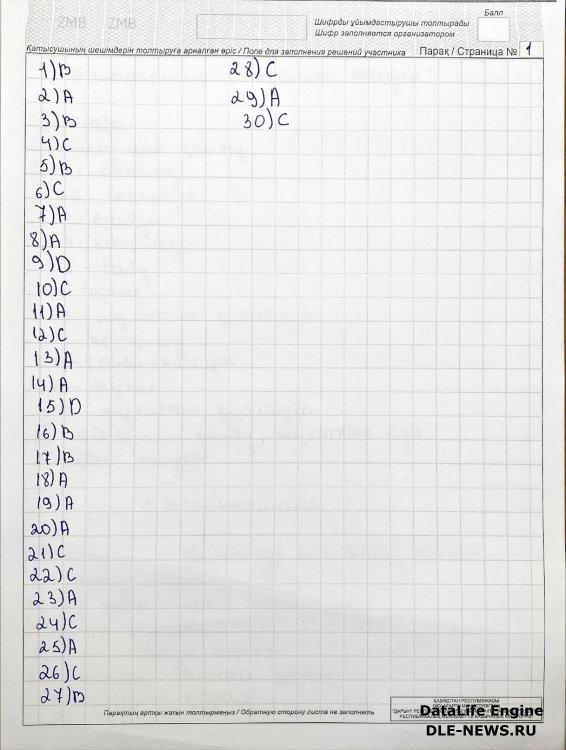 ZMB ZMB
Балл
Шифрды ұйымдастырушы толтырады
Шифр заполняется организатором
Қатысушының шешімдерін толтыруға арналған өріс / Поле для заполнения решений участника
Парақ / Страница № 1
1) B
2) A
3) B
4) C
5) B
6) C
7) A
8) A
9) D
10) C
11) A
12) C
13) A
14) A
15) D
16) B
17) B
18) A
19) A
20) A
21) C
22) C
23) A
24) C
25) A
26) C
27) B
28) C
29) A
30) C
Парақтың артқы жағын толтырмаңыз / Обратную сторону листа не заполнять
ҚАЗАҚСТАН РЕСПУБЛИКАСЫ
DataLife Engine
DLE-NEWS.RU